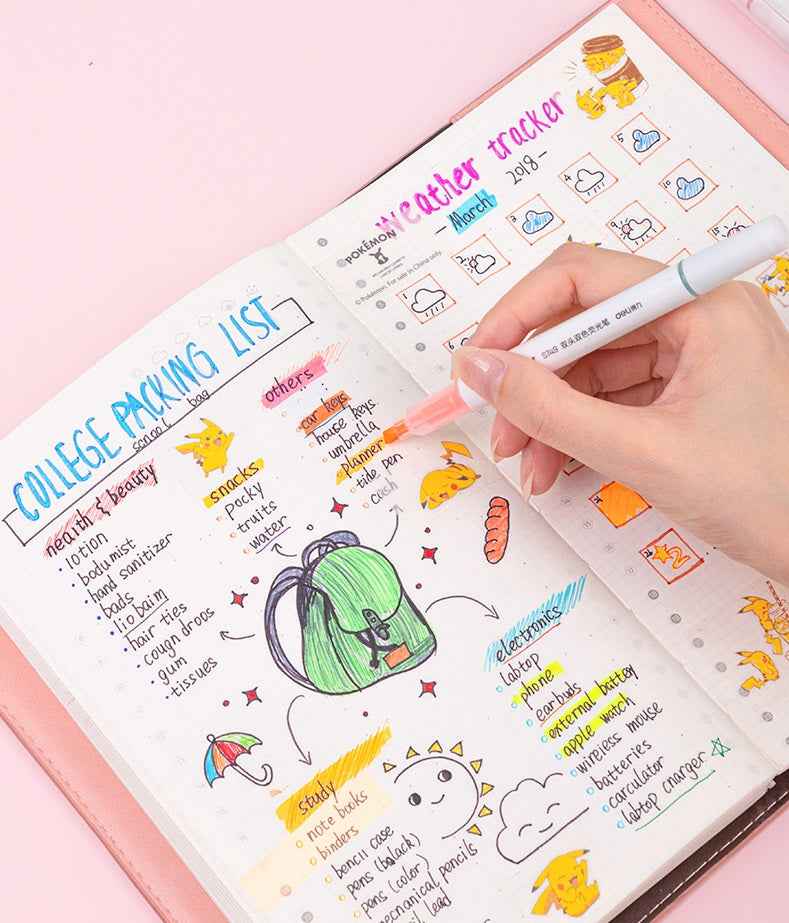 COLLEGE PACKING LIST
school bag
health & beauty
lotion
bodumist
hand sanitizer
bads
lio baim
hair ties
cougn droos
gum
tissues
snacks
pocky
truits
water
others
car keys
house keys
umbrella
planner
tide pen
cash
electronics
labtop
phone
earbuds
external battoy
apple watch
wireiess mouse
batteries
carculator
labtop charger
study
note books
binders
bencil case
pens (balack)
pens (color)
mechanical pencils
lead
weather tracker
March
2018
POKÉMON
© Pokémon. For sale in China only.
1
2
3
4
5
6
9
10
15
deli
双头双色荧光笔